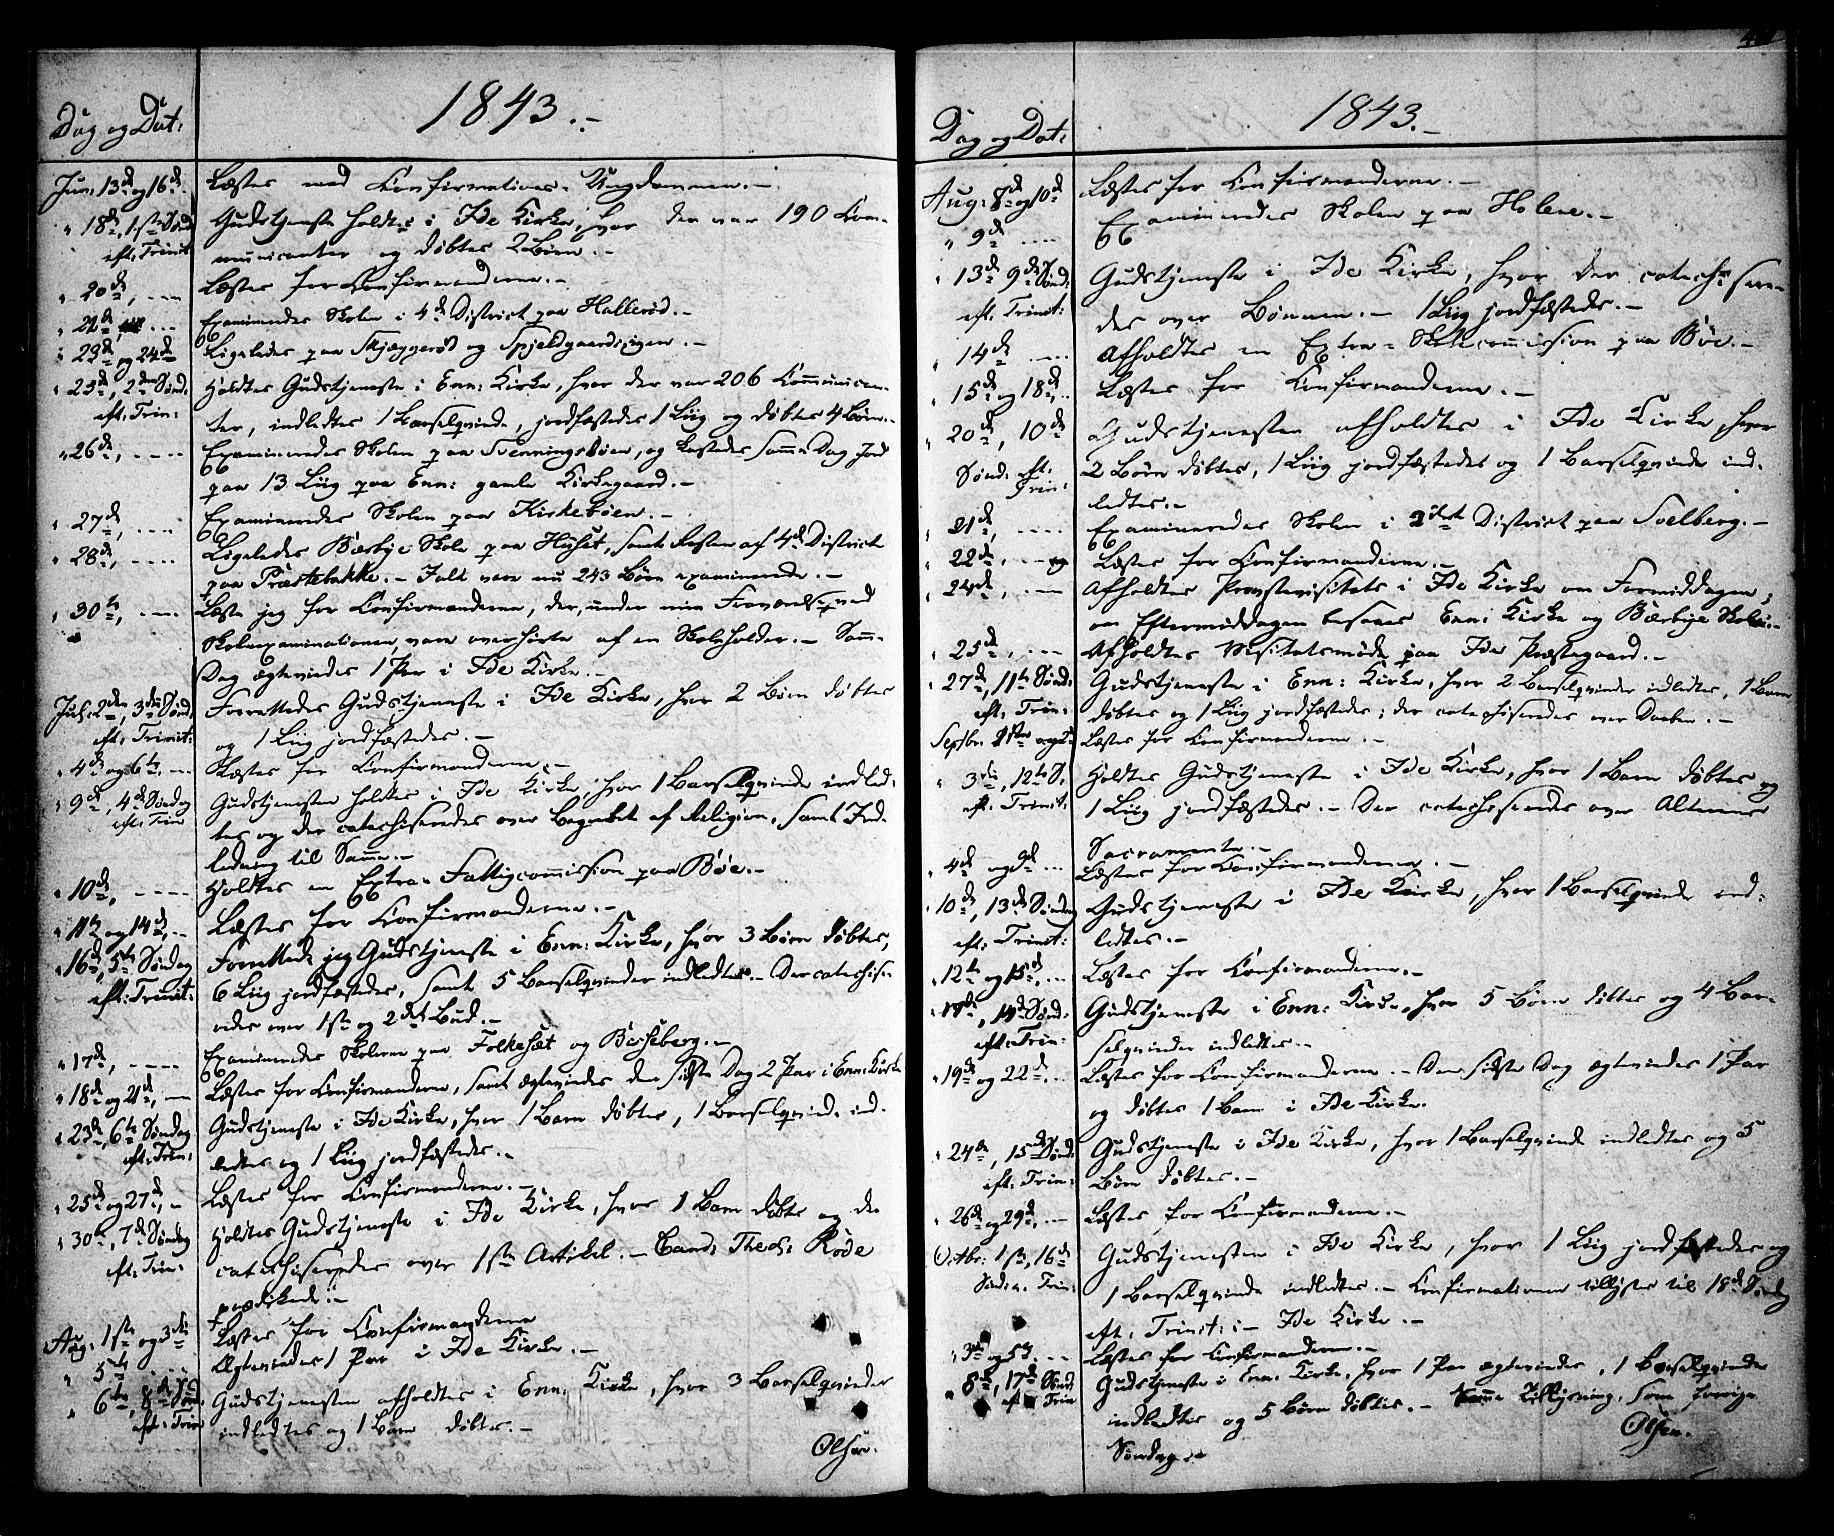 1843.-
Dag og Dat:
Jun: 13de og 16de. Læstes med Confirmations-Ungdommen.-
" 18de, 1ste Sønd. Gudstjeneste holdtes i Ide Kirke, hvor der var 190 Com-
eft: Trinit: municanter og døbtes 2 Børn.-
" 20de, --- Læstes for Confirmanderne.-
" 22de --- Examineredes Skolen i 4de District paa Hallerød.-
" 23de og 24de Ligeledes paa Skjæggerød og Spjeldgaardseien.-
" 25de, 2den Sønd: Holdtes Gudstjeneste i Enn: Kirke, hvor der var 206 Communican-
eft: Trin: ter, indledtes 1 Barselqvinde, jordfæstedes 1 Liig og døbtes 4 Børn.-
" 26de, ---- Examineredes Skolen paa Svenningsbøen, og kastedes samme Dag Jord
paa 13 Liig paa Enn: gamle Kirkegaard.-
" 27de, ---- Examineredes Skolen paa Kirkebøen.-
" 28de, ---- Ligeledes Bærbye Skole paa Huset, samt Resten af 4de District
paa Præstebakke.- Ialt vare nu 243 Børn examinerede.-
" 30te, --- Læste jeg for Confirmanderne, der, under min Fraværelse ved
Skoleexaminationen, vare overhørte af en Skoleholder.- Samme
Dag ægteviedes 1 Par i Ide Kirke.-
Jul: 2den, 3die Sønd: Forrettedes Gudstjeneste i Ide Kirke, hvor 2 Børn døbtes
eft: Trinit: og 1 Liig jordfæstedes.-
" 4de og 6te, -- Læstes for Confirmanderne.-
" 9de, 4de Søndag Gudstjenesten holdtes i Ide Kirke, hvor 1 Barselqvinde indled-
eft: Trin tes og der catechiseredes over Begrebet af Religion, samt Ind-
ledning til Samme.-
" 10de, ---- Holdtes en Extra-Fattigcommission paa Bøe.-
" 11te og 14de, -- Læstes for Confirmanderne.-
" 16de, 5te Søndag Forrettede jeg Gudstjeneste i Enn: Kirke, hvor 3 Børn døbtes,
eft: Trinit: 6 Liig jordfæstedes, samt 5 Barselqvinder indledtes.- Der catechise-
redes over 1ste og 2det Bud.-
" 17de, ---- Examineredes Skolerne paa Folkesæt og Berseberg.-
" 18de og 21de, -- Læstes for Confirmanderne, samt ægteviedes den sidste Dag 2 Par i Enn: Kirke
" 23de, 6te Søndag Gudstjeneste i Ide Kirke, hvor 1 Barn døbtes, 1 Barselqvinde ind-
eft: Trin: ledtes og 1 Liig jordfæstedes.-
" 25de og 27de, - Læstes for Confirmanderne.-
" 30te, 7de Søndag Holdtes Gudstjeneste i Ide Kirke, hvor 1 Barn døbtes og der
eft: Trin: catechiseredes over 1ste Artikel.- Cand: Theol: Rode
prædikede.-
Aug: 1ste og 3die Læstes for Confirmanderne
" 5te Ægteviedes 1 Par i Ide Kirke.-
" 6te, 8de Sønd. Gudstjenesten afholdtes i Enn: Kirke, hvor 3 Barselqvinder
eft: Trin indledtes og 1 Barn døbtes.-
Olsen.
1843.-
Dag og Dat:
Aug: 8de og 10de Læstes for Confirmanderne.-
" 9de ---- Examineredes Skolen paa Holene.-
" 13de 9de Sønd: Gudstjeneste i Ide Kirke, hvor der catechisere-
eft: Trinit: des over Bønnen.- 1 Liig jordfæstedes.-
" 14de ---- Afholdtes en Extra-Skolecommission paa Bøe.-
" 15de og 18de, -- Læstes for Confirmanderne.-
" 20de, 10de Gudstjenesten afholdtes i Ide Kirke, hvor
Sønd: eft: Trin: 2 Børn døbtes, 1 Liig jordfæstedes og 1 Barselqvinde ind-
ledtes.-
" 21de, ---- Examineredes Skolen i 2det District paa Svelberg.-
" 22de, --- og Læstes for Confirmanderne.-
" 24de, --- Afholdtes Provstevisitats i Ide Kirke om Formiddagen;
om Eftermiddagen besaaes Enn: Kirke og Bærbye Skole.-
" 25de, --- Afholdtes Visitatsmøde paa Ide Præstegaard.-
" 27de, 11te Sønd: Gudstjeneste i Enn: Kirke, hvor 2 Barselqvinder indledtes, 1 Barn
eft: Trin: døbtes og 1 Liig jordfæstedes; der catechiseredes over Daaben.-
Septbr: 1ste og Læstes for Confirmanderne.-
" 3die, 12te S. Holdtes Gudstjeneste i Ide Kirke, hvor 1 Barn døbtes og
eft: Trinit: 1 Liig jordfæstedes.- Der catechiseredes over Alterens
Sacramente.-
" 4de og 9de --- Læstes for Confirmanderne.-
10de, 13de Søndag Gudstjeneste i Ide Kirke, hvor 1 Barselqvinde ind-
eft: Trinit: ledtes.-
" 12te og 15de, --- Læstes for Confirmanderne.-
" 17de, 14de Sønd: Gudstjeneste i Enn: Kirke, hvor 5 Børn døbtes og 4 Bar-
eft: Trin: selqvinder indledtes.-
" 19de og 22de, -- Læstes for Confirmanderne.- Den sidste Dag ægteviedes 1 Par
og døbtes 1 Barn i Ide Kirke.
" 24de, 15de Sønd: Gudstjeneste i Ide Kirke, hvor 1 Barselqvinde indledtes og 5
eft: Trin: Børn døbtes.-
" 26de og 29de, -- Læstes for Confirmanderne.-
Octbr: 1ste, 16de Gudstjenesten i Ide Kirke, hvor 1 Liig jordfæstedes og
Sønd: e. Trin: 1 Barselqvinde indledtes.- Confirmationen tillystes til 18de Søndag
eft: Trinit: i Ide Kirke.-
" 3die og 5te, -- Læstes for Confirmanderne.-
" 8de, 17de Sønd: Gudstjeneste i Enn: Kirke, hvor 1 Par ægteviedes, 1 Barselqvinde
eft: Trin indledtes og 5 Børn døbtes.- Samme Tillysning, som forrige
Søndag.- Olsen.